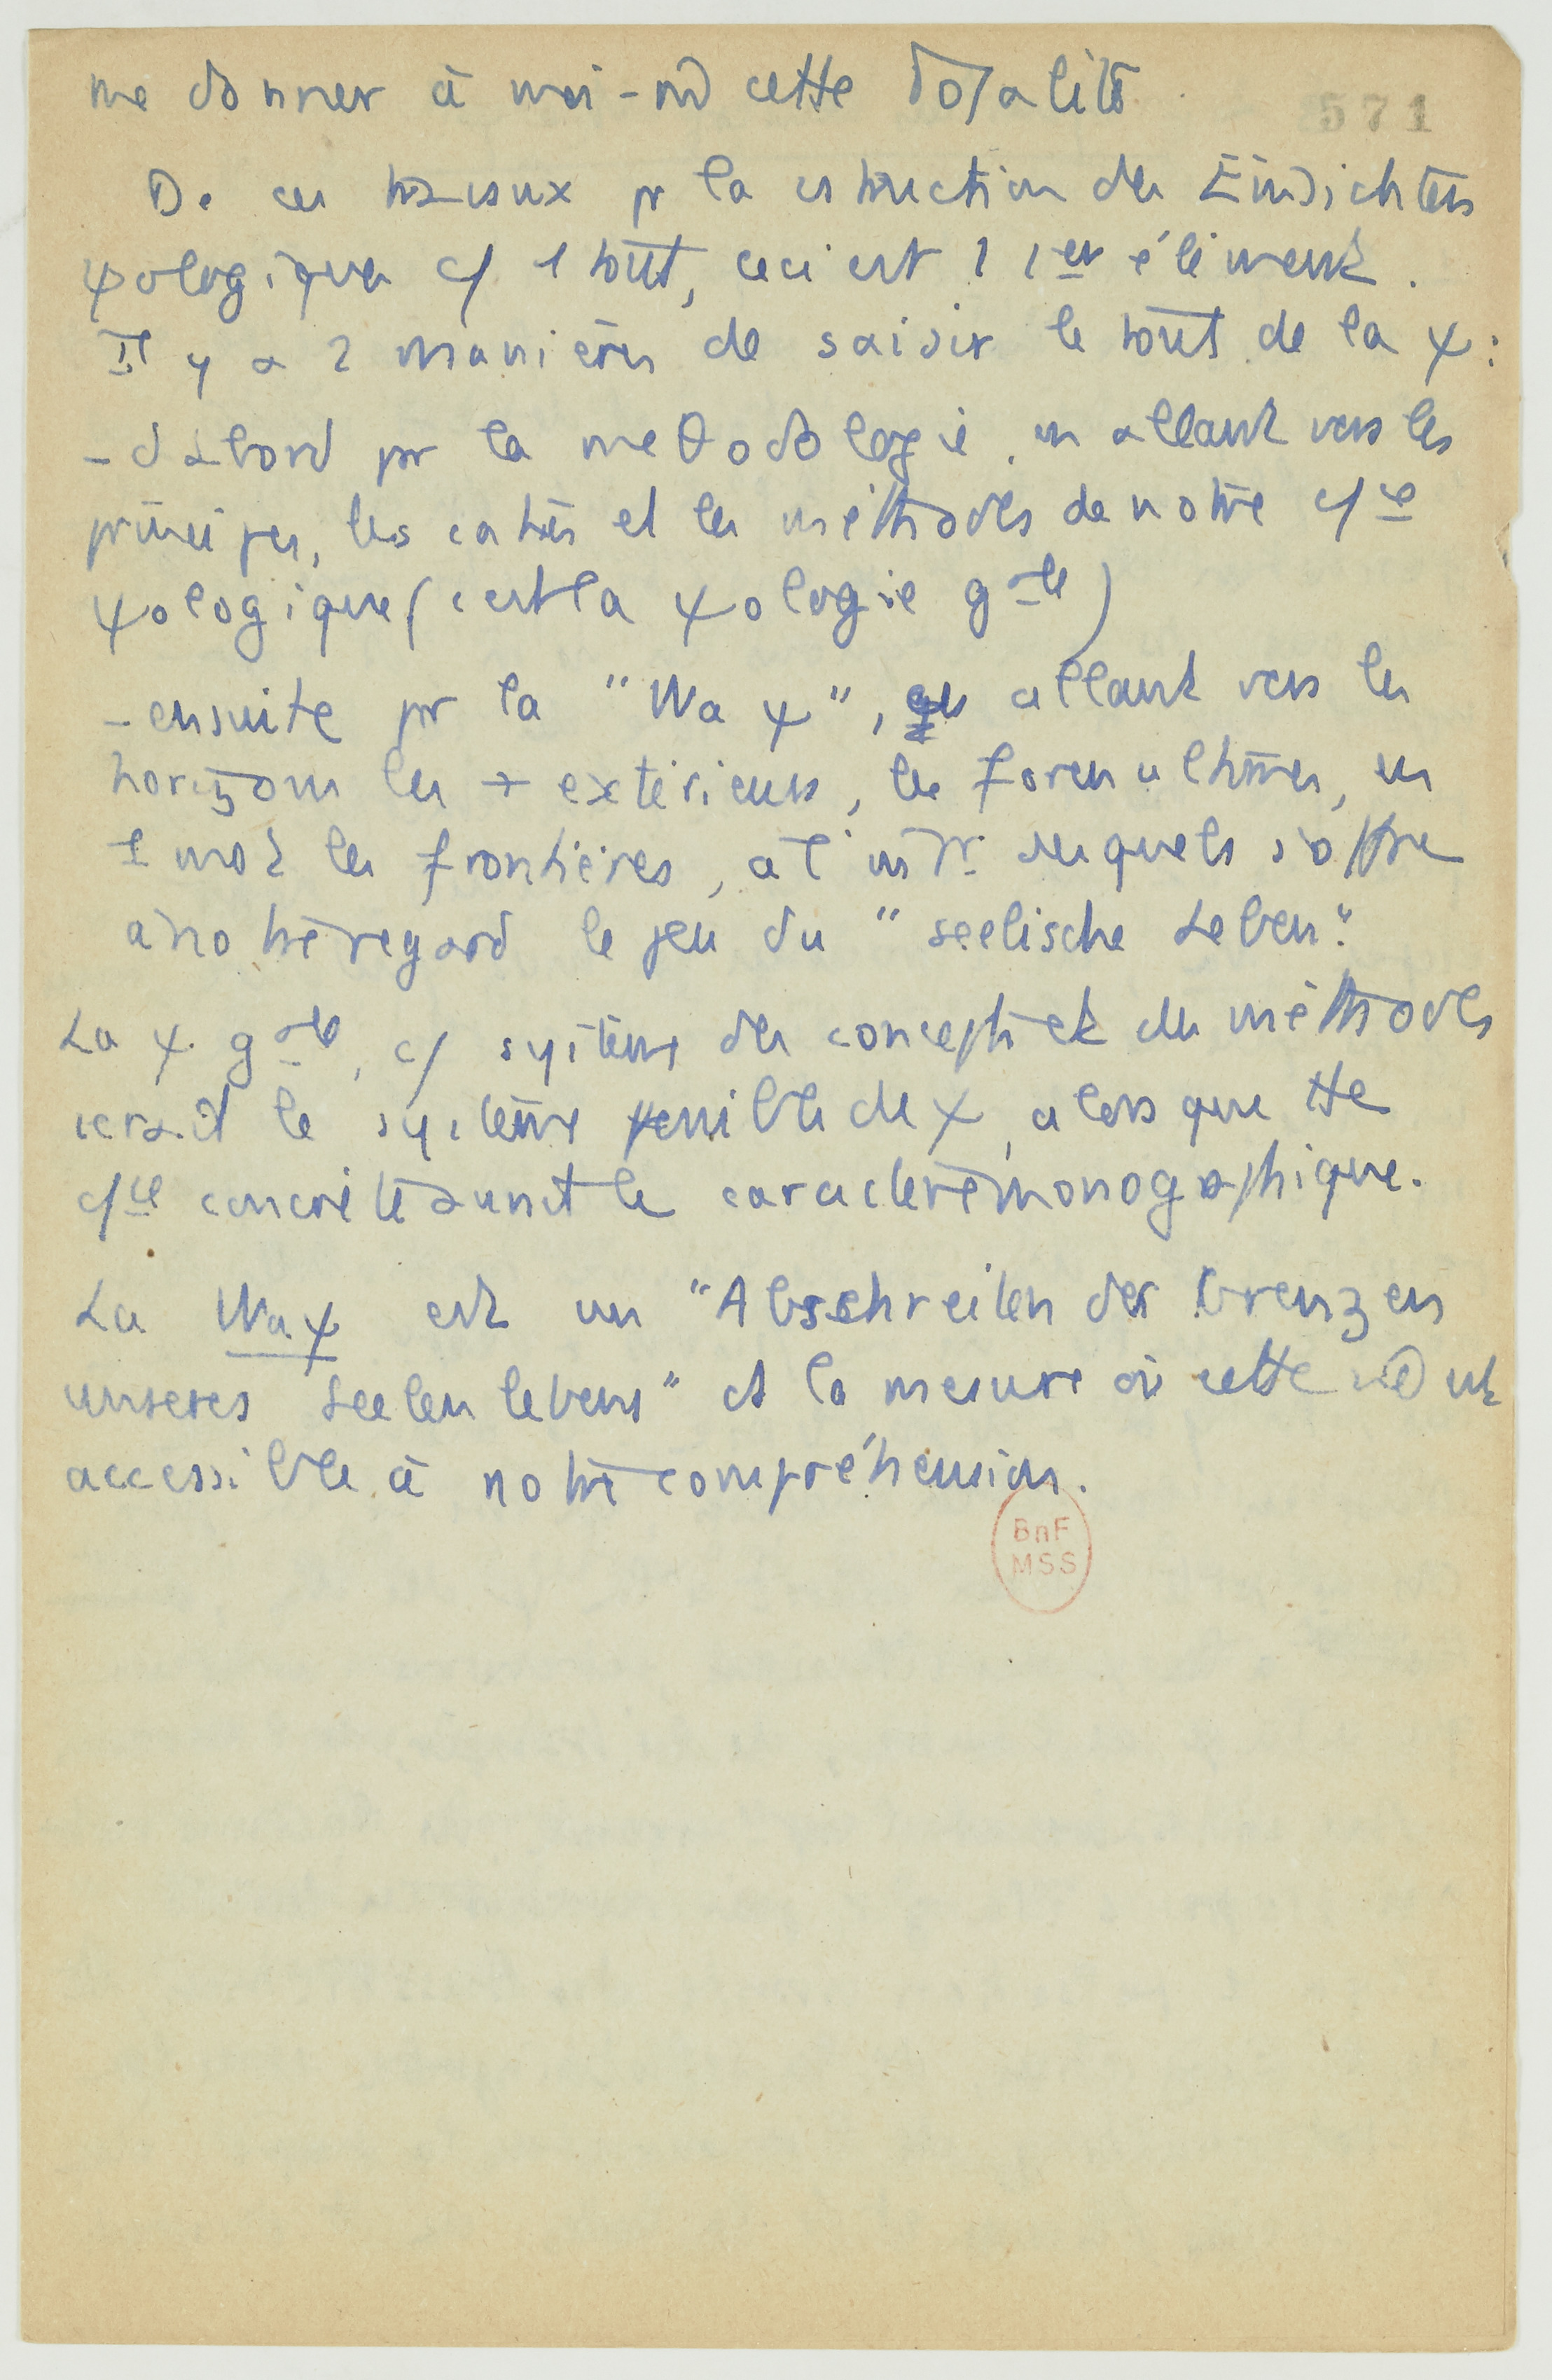 me donner à moi-m̂ cette totalité
571
De ces travaux pr la cstruction des Einsichten
ψologiques c/ 1 tout, ceci est 1 1er élément.
Il y a 2 manières de saisir le tout de la ψ :
- d'abord pr la méθodologie, en allant vers les
principes, les catés et les méthodes de notre c/ce
ψologique (c'est la ψologie gale)
- ensuite pr la "Wa ψ", en allant vers les
horizons les + extérieurs, les formes ultimes, en
1 mot les frontières, à l'intr desquels s'offre
à notre regard le jeu du "seelische Leben".
La ψ. gale, c/ système des concepts et des méthodes
serait le système de ψ, alors que tte
c/ce concrète aurait le caractère monographique.
La Wa ψ est un "Abschreiten der Grenzen
unseres Seelenlebens" ds la mesure où cette vie est
accessible à notre compréhension.
BnF
MSS